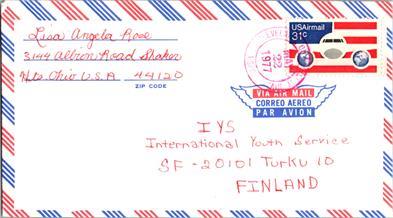 Lisa Angela Rose
3144 Albion Road Shaker
Hts. Ohio U.S.A 44120
ZIP CODE
USAirmail
31c
1977
VIA AIR MAIL
CORREO AEREO
PAR AVION
IYS
International Youth Service
SF-20101 Turku 10
FINLAND